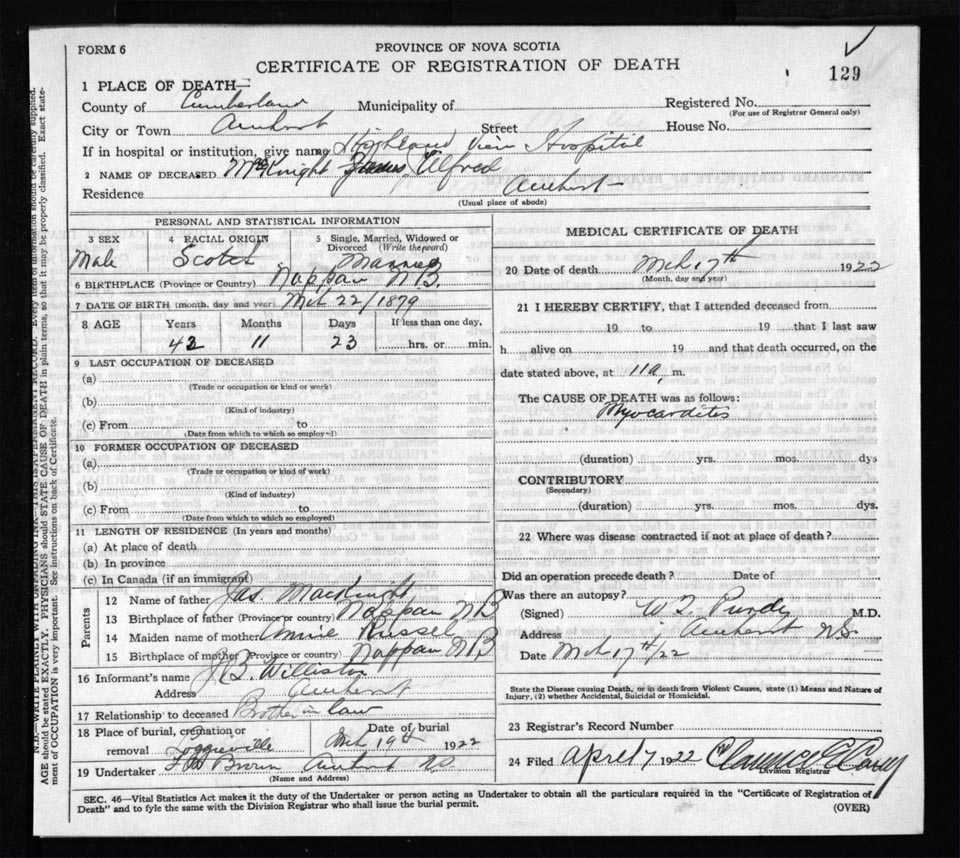 FORM 6
PROVINCE OF NOVA SCOTIA
CERTIFICATE OF REGISTRATION OF DEATH
129
1 PLACE OF DEATH—
County of Cumberland Municipality of Registered No.
(For use of Registrar General only)
City or Town Amherst Street House No.
If in hospital or institution, give name Highland View Hospital
2 NAME OF DECEASED McKnight James Alfred
Residence Amherst
(Usual place of abode)
PERSONAL AND STATISTICAL INFORMATION
3 SEX 4 RACIAL ORIGIN 5 Single, Married, Widowed or Divorced (Write the word)
Male Scotch Married
6 BIRTHPLACE (Province or Country) Nappan NB.
7 DATE OF BIRTH (month, day and year) Mch 22/1879
8 AGE Years Months Days If less than one day,
42 11 23 hrs. or min.
9 LAST OCCUPATION OF DECEASED
(a)
(Trade or occupation or kind or work)
(b)
(Kind of industry)
(c) From to
(Date from which to which so employed)
10 FORMER OCCUPATION OF DECEASED
(a)
(Trade or occupation or kind of work)
(b)
(Kind of industry)
(c) From to
(Date from which to which so employed)
11 LENGTH OF RESIDENCE (In years and months)
(a) At place of death
(b) In province
(c) In Canada (if an immigrant)
Parents
12 Name of father Jas. MacKnight
13 Birthplace of father (Province or country) Nappan NB
14 Maiden name of mother Annie Russel
15 Birthplace of mother (Province or country) Nappan NB
16 Informant's name Williston
Address Amherst
17 Relationship to deceased Brother in law
18 Place of burial, cremation or removal Loggieville Date of burial Mch 19th 1922
19 Undertaker Brown Amherst NS
(Name and Address)
MEDICAL CERTIFICATE OF DEATH
20 Date of death Mch 17th 1922
(Month, day and year)
21 I HEREBY CERTIFY, that I attended deceased from
19 to 19 that I last saw
h alive on 19 and that death occurred, on the
date stated above, at 11 a m.
The CAUSE OF DEATH was as follows:
Myocardites
(duration) yrs. mos. dys
CONTRIBUTORY
(Secondary)
(duration) yrs. mos. dys.
22 Where was disease contracted if not at place of death?
Did an operation precede death? Date of
Was there an autopsy?
(Signed) W T. Purdy M.D.
Address Amherst NS.
Date Mch 17th/22
State the Disease causing Death, or in death from Violent Causes, state (1) Means and Nature of
Injury, (2) whether Accidental, Suicidal or Homicidal.
23 Registrar's Record Number
24 Filed April 7 1922
Division Registrar
SEC. 46—Vital Statistics Act makes it the duty of the Undertaker or person acting as Undertaker to obtain all the particulars required in the "Certificate of Registration of
Death" and to fyle the same with the Division Registrar who shall issue the burial permit. (OVER)
N.B.—WRITE PLAINLY WITH UNFADING INK—THIS IS A PERMANENT RECORD. Every item of information should be carefully supplied.
AGE should be stated EXACTLY. PHYSICIANS should STATE CAUSE OF DEATH in plain terms, so that it may be properly classified. Exact state-
ment of OCCUPATION is very important. See instructions on back of Certificate.